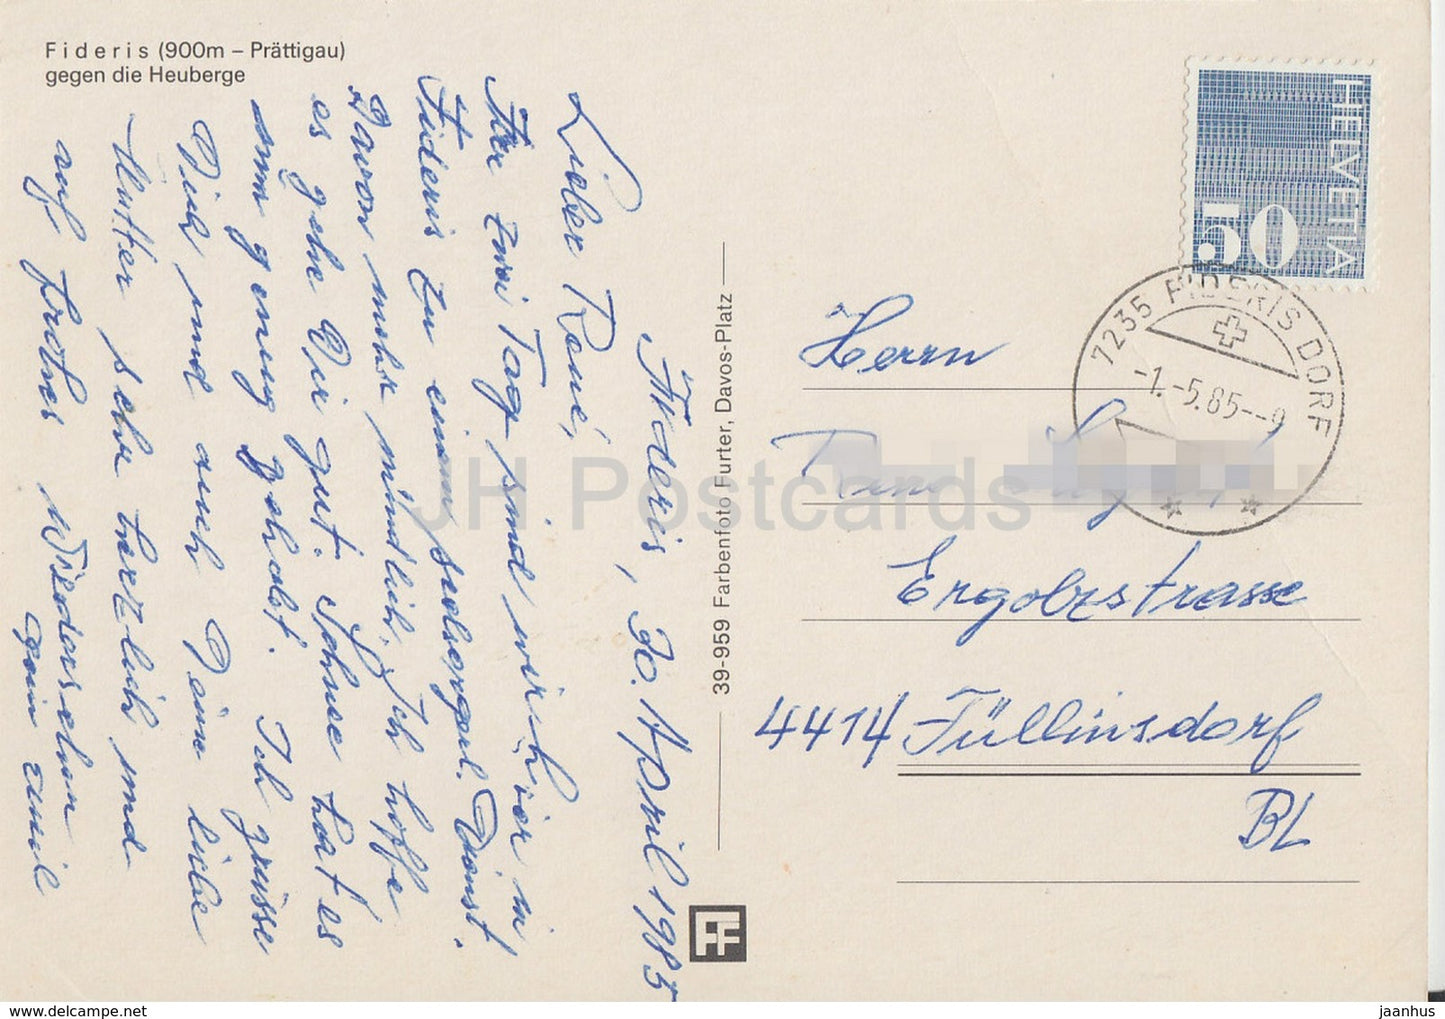 Fideris (900m – Prättigau)
gegen die Heuberge
Fideris, 30. April 1985
Lieber René,
Für zwei Tag sind wir hier in
Fideris zu einem seelsorgerl. Dienst.
Davon mehr mündlich. Ich hoffe
es gehe Dir gut. Schnee hat es
nun genug gehabt. Ich grüsse
Dich und auch Deine liebe
Mutter sehr herzlich und
auf frohes Wiedersehen
39-959 Farbenfoto Furter, Davos-Platz
FF
HELVETIA
50
7235 FIDERIS DORF
-1.-5.85--9
Herrn
Ergolzstrasse
4414 Füllinsdorf
BL
JH Postcards
delcampe.net
jaanhus